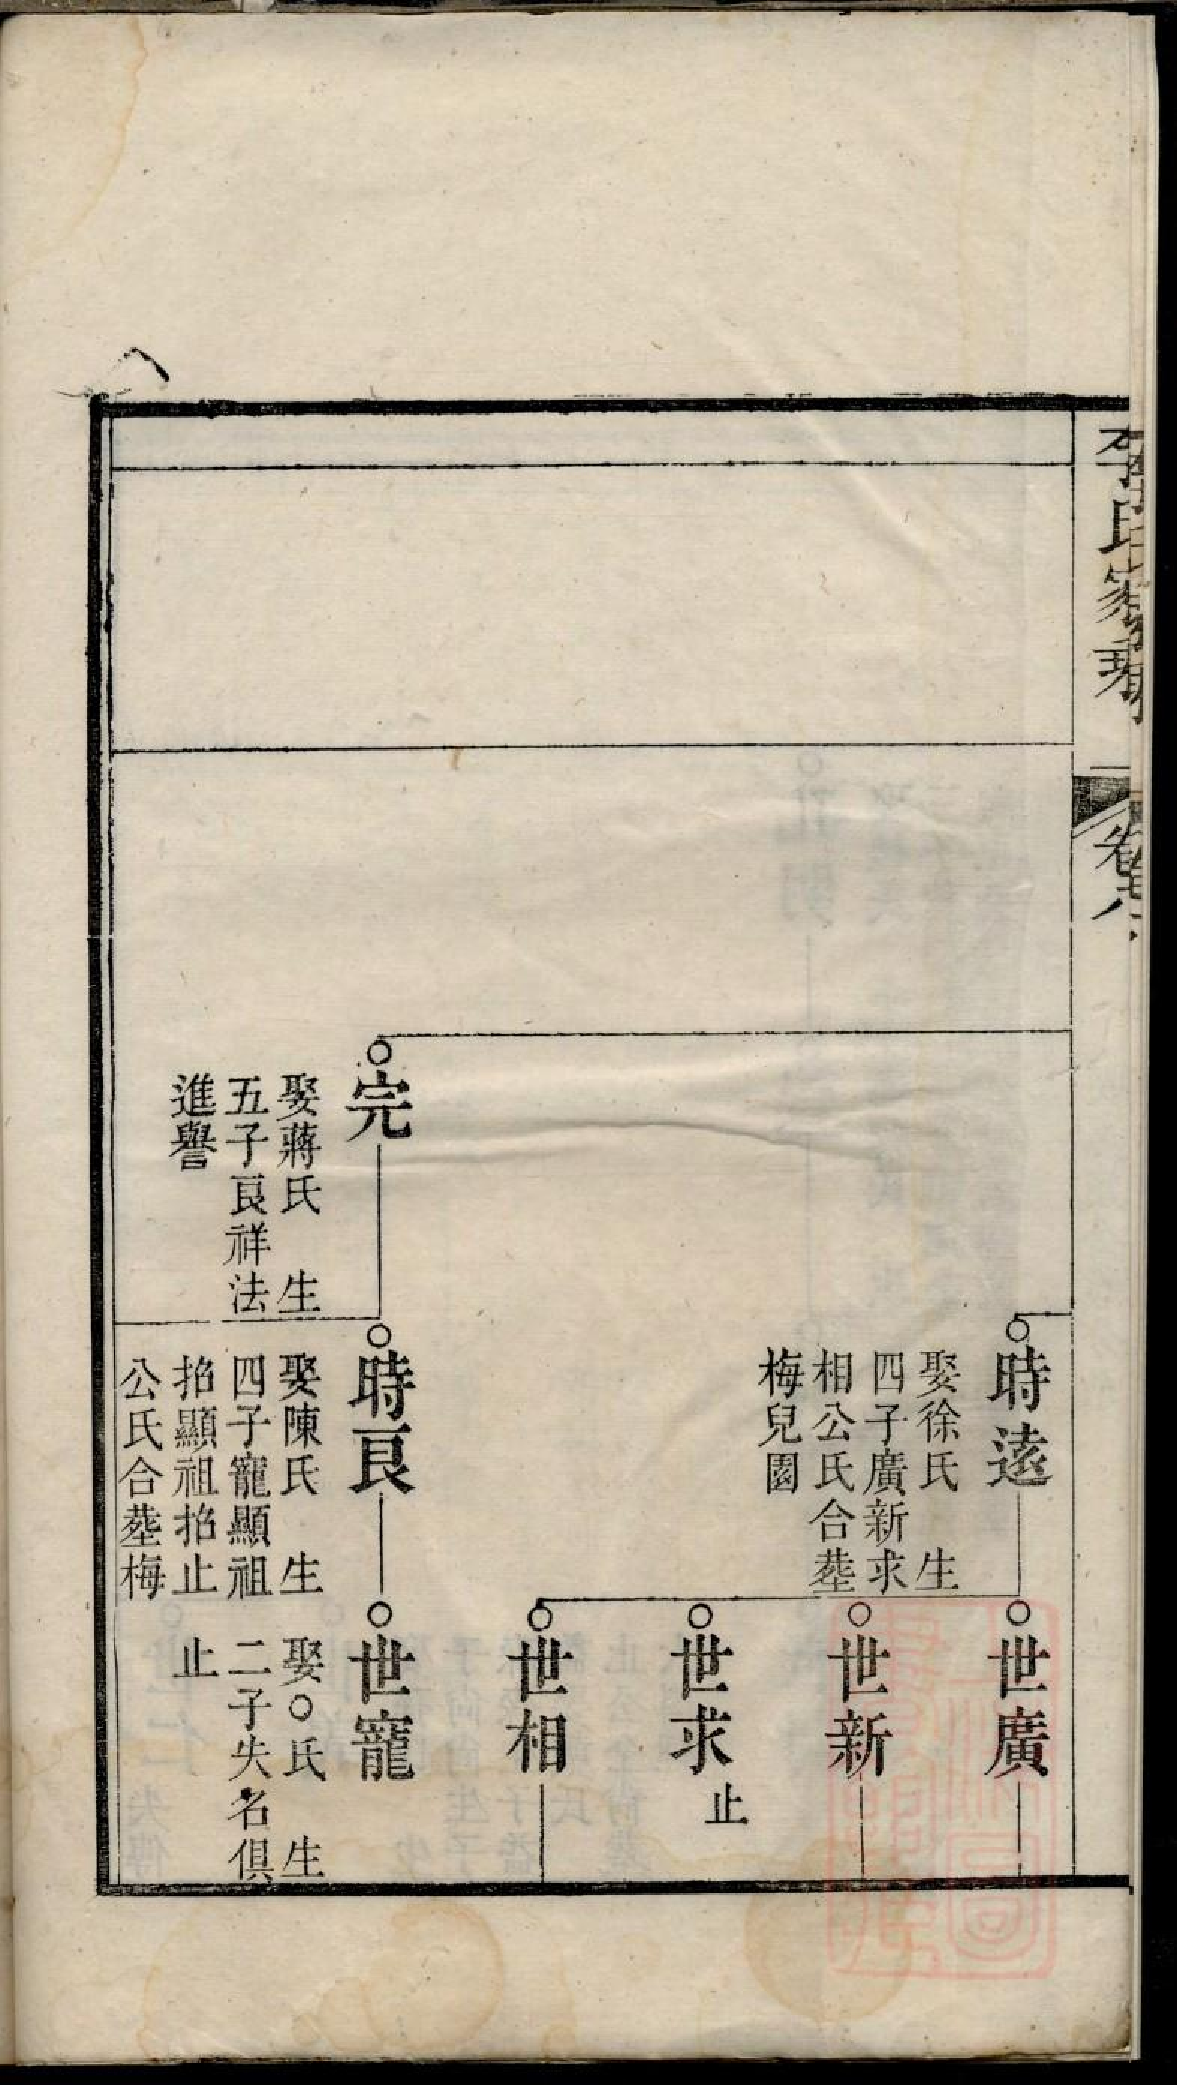 氏
卷
八
完
娶蔣氏　生
五子良祥法
進譽
時遠
娶徐氏　生
四子廣新求
相公氏合塟
梅兒園
時良
娶陳氏　生
四子寵顯祖
招顯祖招止
公氏合塟梅
世廣
世新
世求
止
世相
世寵
娶○氏　生
二子失名俱
止